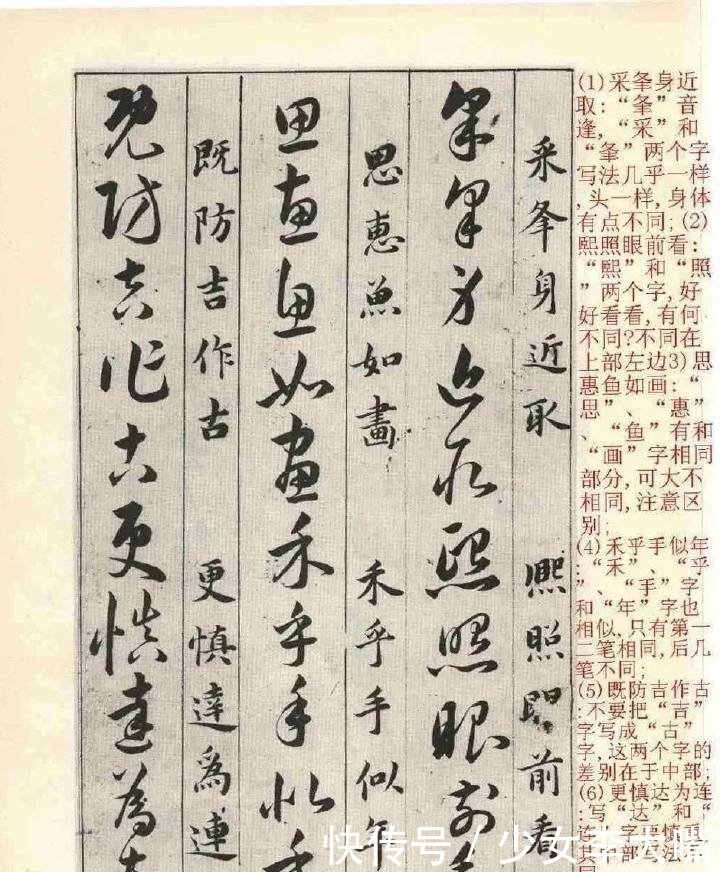 (1)采夆身近
取:“夆”音
逢,“采”和
“夆”两个字
写法几乎一样
,头一样,身体
有点不同;(2)
熙照眼前看:
“熙”和“照
”两个字,好
好看看,有何
不同?不同在
上部左边3)思
惠鱼如画:“
思”、“惠”
、“鱼”有和
“画”字相同
部分,可大不
相同,注意区
别;
(4)禾乎手似年
:“禾”、“乎
”、“手”字
和“年”字也
相似,只有第一
二笔相同,后几
笔不同;
(5)既防吉作古
:不要把“吉”
字写成“古”
字,这两个字的
差别在于中部;
(6)更慎达为连
:写“达”和“
采夆身近取 熈照眼前看
采夆身近取熈照眼前
思惠魚如畫 禾乎手似年
思惠魚如畫禾乎手似年
既防吉作古 更慎達為連
既防吉作古更慎達為
快传号 / 少女李大嘴